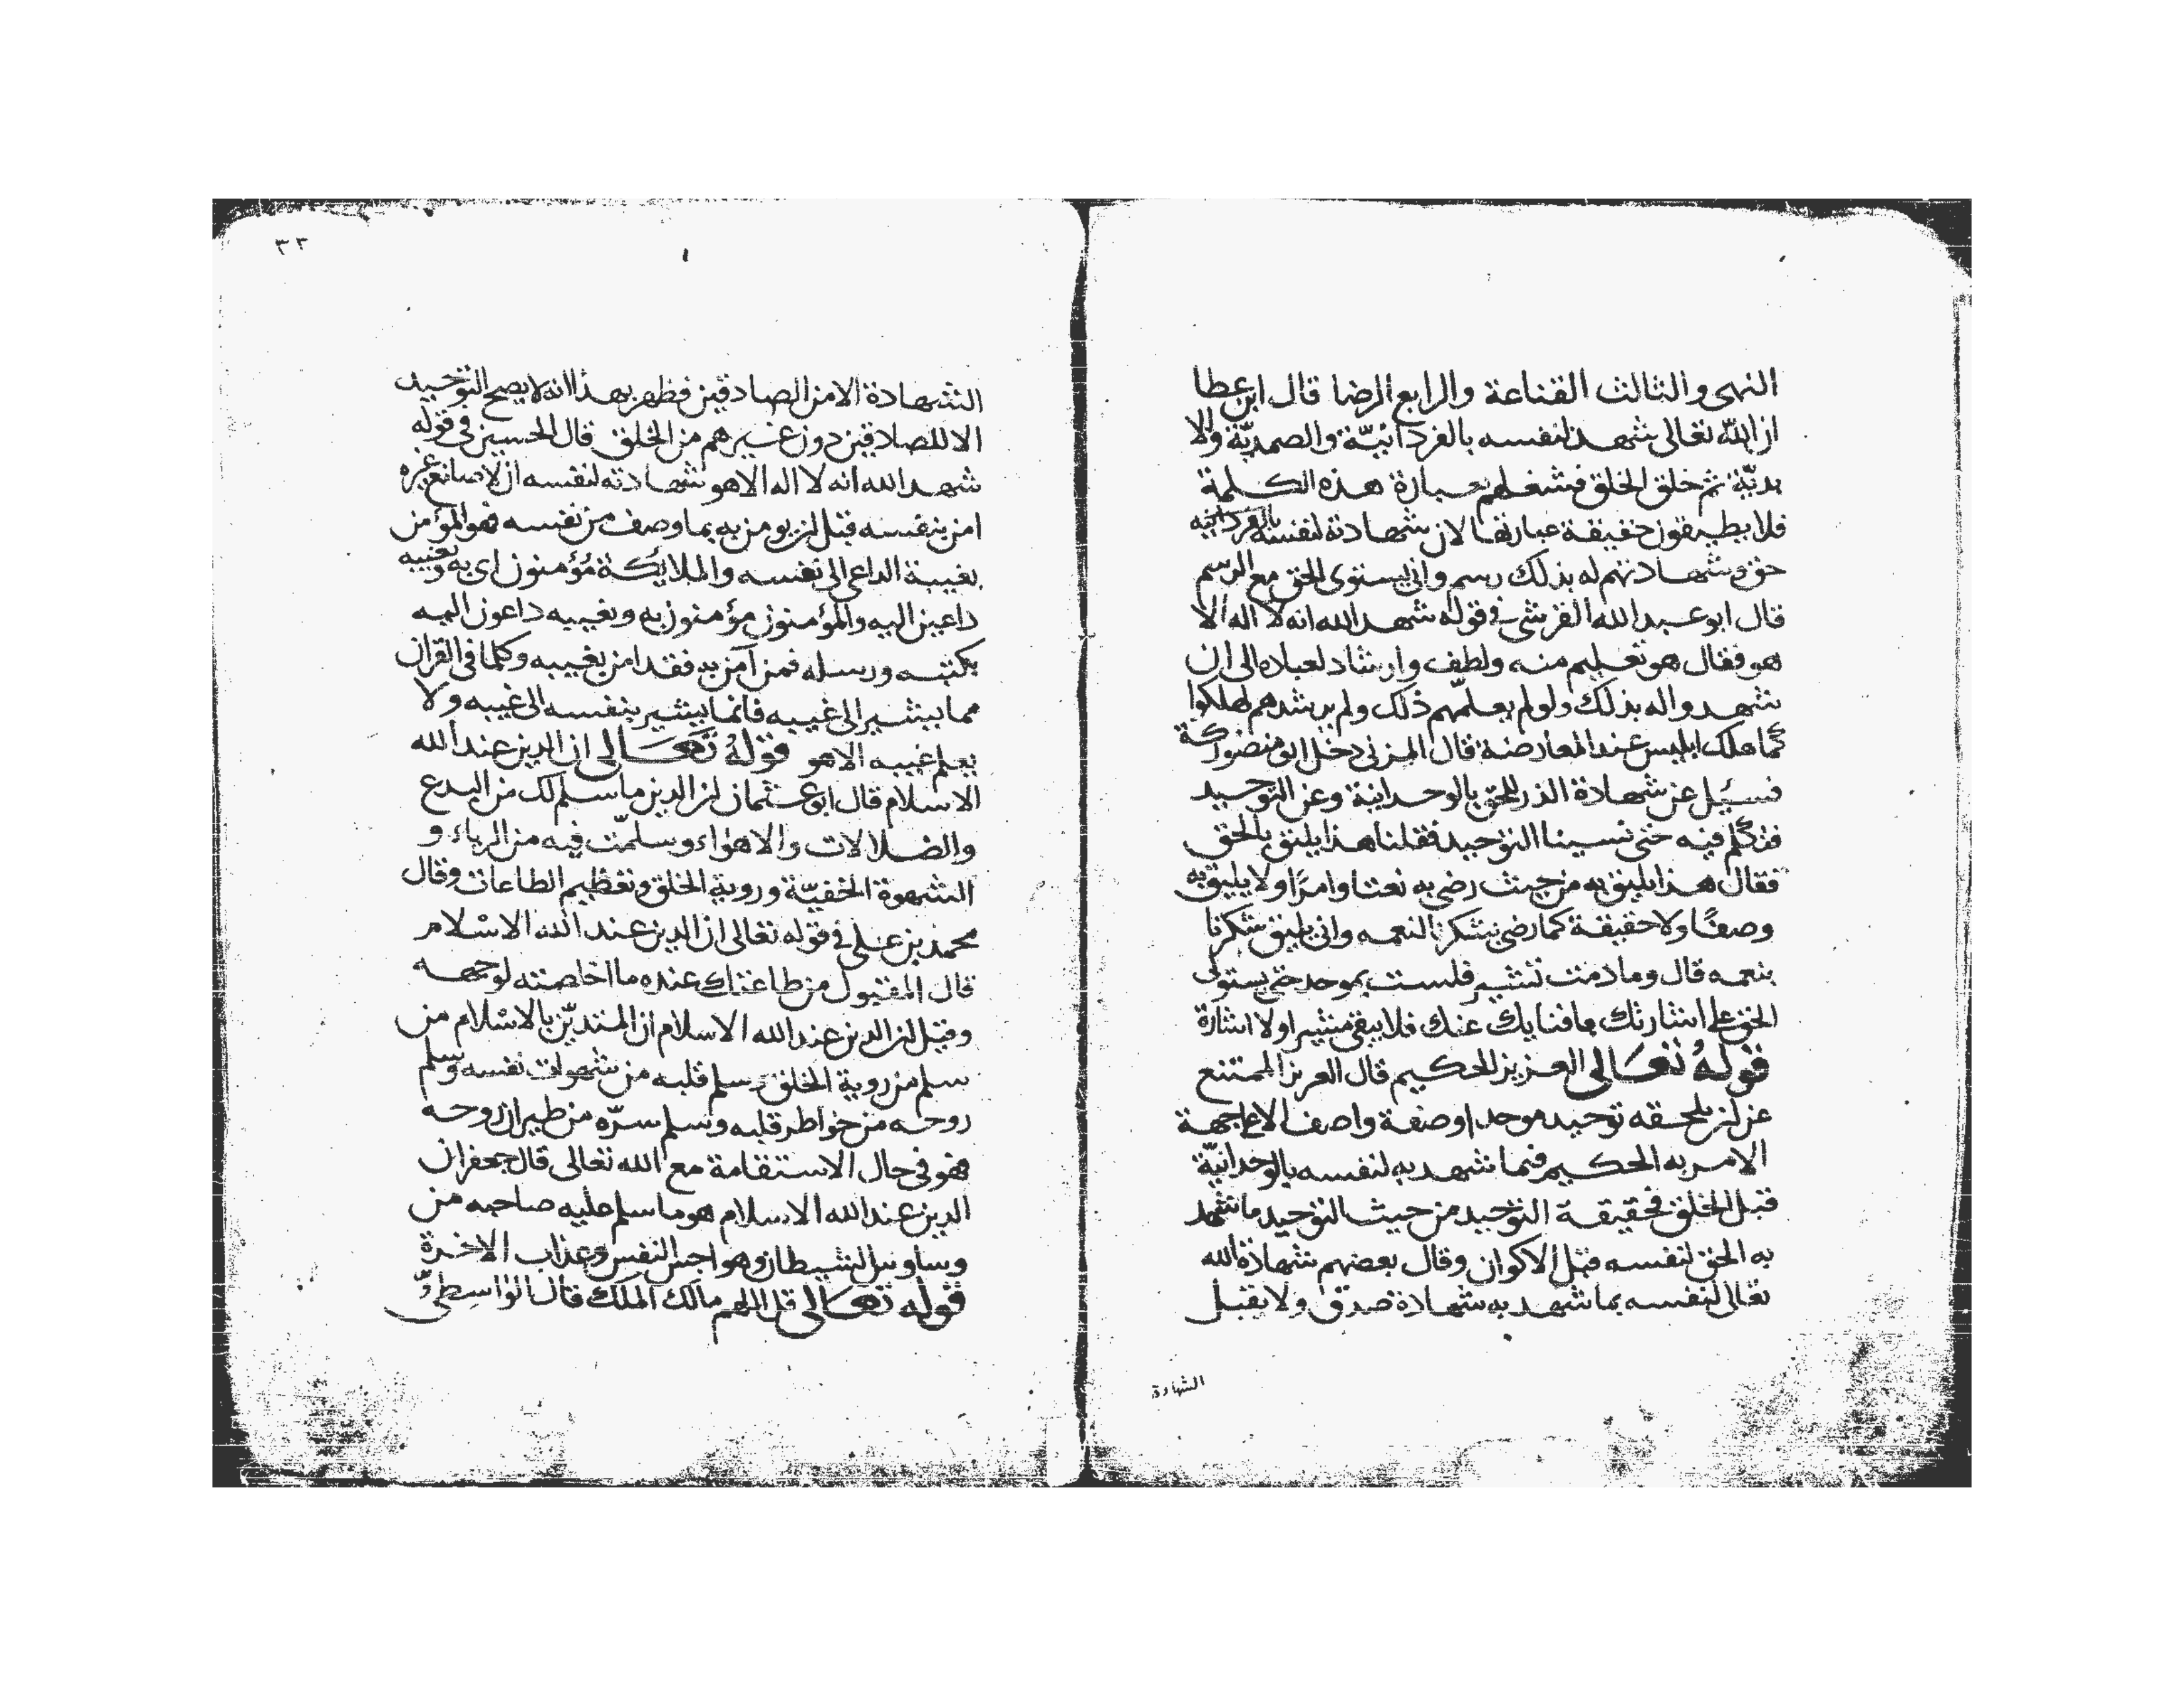 النهى والثالث القناعة والرابع الرضا قال ابن عطا
ان الله تعالى شهد لنفسه بالفردانيّة والصمديّة والا
بديّة ثم خلق الخلق فشغلهم بعبارة هذه الكلمة
فلا يطيقون حقيقة عبارتها لان شهادته لنفسه بالفردانيه
حق وشهادتهم له بذلك رسم وانى يستوى الحق مع الرسم
قال ابو عبد الله القرشى فى قوله شهد الله انه لا اله الا
هو فقال هو تعليم منه ولطف وارشاد لعباده الى ان
شهدوا له بذلك ولو لم يعلّمهم ذلك ولم يرشدهم لهلكوا
كما هلك ابليس عند المعارضة قال المزنى دخل ابو منصور مكة
فسئل عن شهادة الذر للحق بالوحدانية وعن التوحيد
فتكلم فيه حتى نسينا التوحيد فقلنا هذا يليق بالحق
فقال هذا يليق به من حيث رضى به نعتا وامرًا ولا يليق به
وصفًا ولا حقيقة كما رضى بشكرنا لنعمه وانى يليق شكرنا
بنعمه قال وما دمت تشير فلست بموحد حتى يستولى
الحق على اشارتك بافنايك عنك فلا يبقى مشيرا ولا اشارة
قوله تعالى العزيز الحكيم قال العزيز الممتنع
عن ان يلحقه توحيد موحد او صفة واصف الا على جهة
الامر به الحكيم فيما شهد به لنفسه بالوحدانيّة
قبل الخلق فحقيقة التوحيد من حيث التوحيد ما شهد
به الحق لنفسه قبل الاكوان وقال بعضهم شهادة الله
تعالى لنفسه بما شهد به شهادة صدق ولا يقبل
الشهادة
٣٢
الشهادة الا من الصادقين فظهر بهذا انه لا يصح التوحيد
الا للصادقين دون غيرهم من الخلق قال الحسين فى قوله
شهد الله انه لا اله الا هو شهادته لنفسه ان لا صانع غيره
امن بنفسه قبل ان يومن به بما وصف من نفسه فهو المؤمن
بغيبة الداعى الى نفسه والملائكة مؤمنون اى به وبغيبه
داعين اليه والمؤمنون مؤمنون به وبغيبه داعون اليه
بكتبه ورسله فمن آمن به فقد امن بغيبه وكلما فى القران
مما يشير الى غيبه فانما يشير بنفسه الى غيبه ولا
يعلم غيبه الا هو قوله تعالى ان الدين عند الله
الاسلام قال ابو عثمان ان الدين ما سلم لك من البدع
والضلالات والاهواء وسلمت فيه من الرياء و
الشهوة الخفيّة وروية الخلق وتعظيم الطاعات وقال
محمد بن على فى قوله تعالى ان الدين عند الله الاسلام
قال المقبول من طاعتك عنده ما اخلصته لوجهه
وقيل ان الدين عند الله الاسلام ان المتديّن بالاسلام من
سلم من روية الخلق وسلم قلبه من شهوات نفسه وسلم
روحه من خواطر قلبه وسلم سرّه من طيران روحه
فهو فى حال الاستقامة مع الله تعالى قال جعفر ان
الدين عند الله الاسلام هو ما سلم عليه صاحبه من
وساوس الشيطان وهواجس النفس وعذاب الاخرة
قوله تعالى قل اللهم مالك الملك قال الواسطى